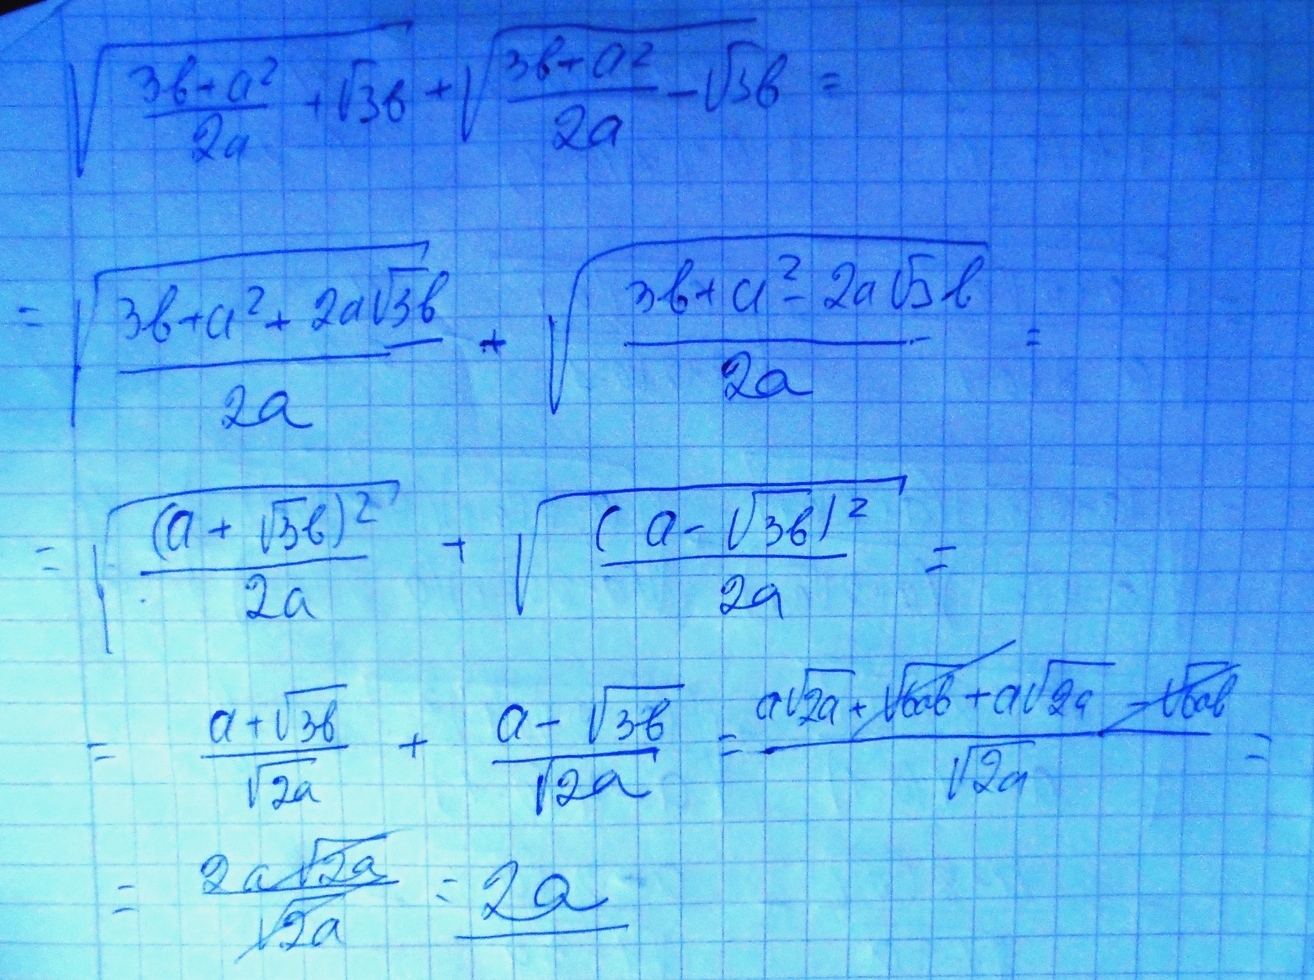 √((3в+a²)/(2a) + √3в) + √((3в+a²)/(2a) − √3в) =
= √((3в+a²+2a√3в)/(2a)) + √((3в+a²−2a√3в)/(2a)) =
= √((a+√3в)²/(2a)) + √((a−√3в)²/(2a)) =
= (a+√3в)/√2a + (a−√3в)/√2a = (a√2a + √6aв + a√2a − √6aв)/√2a =
= 2a√2a/√2a = 2a